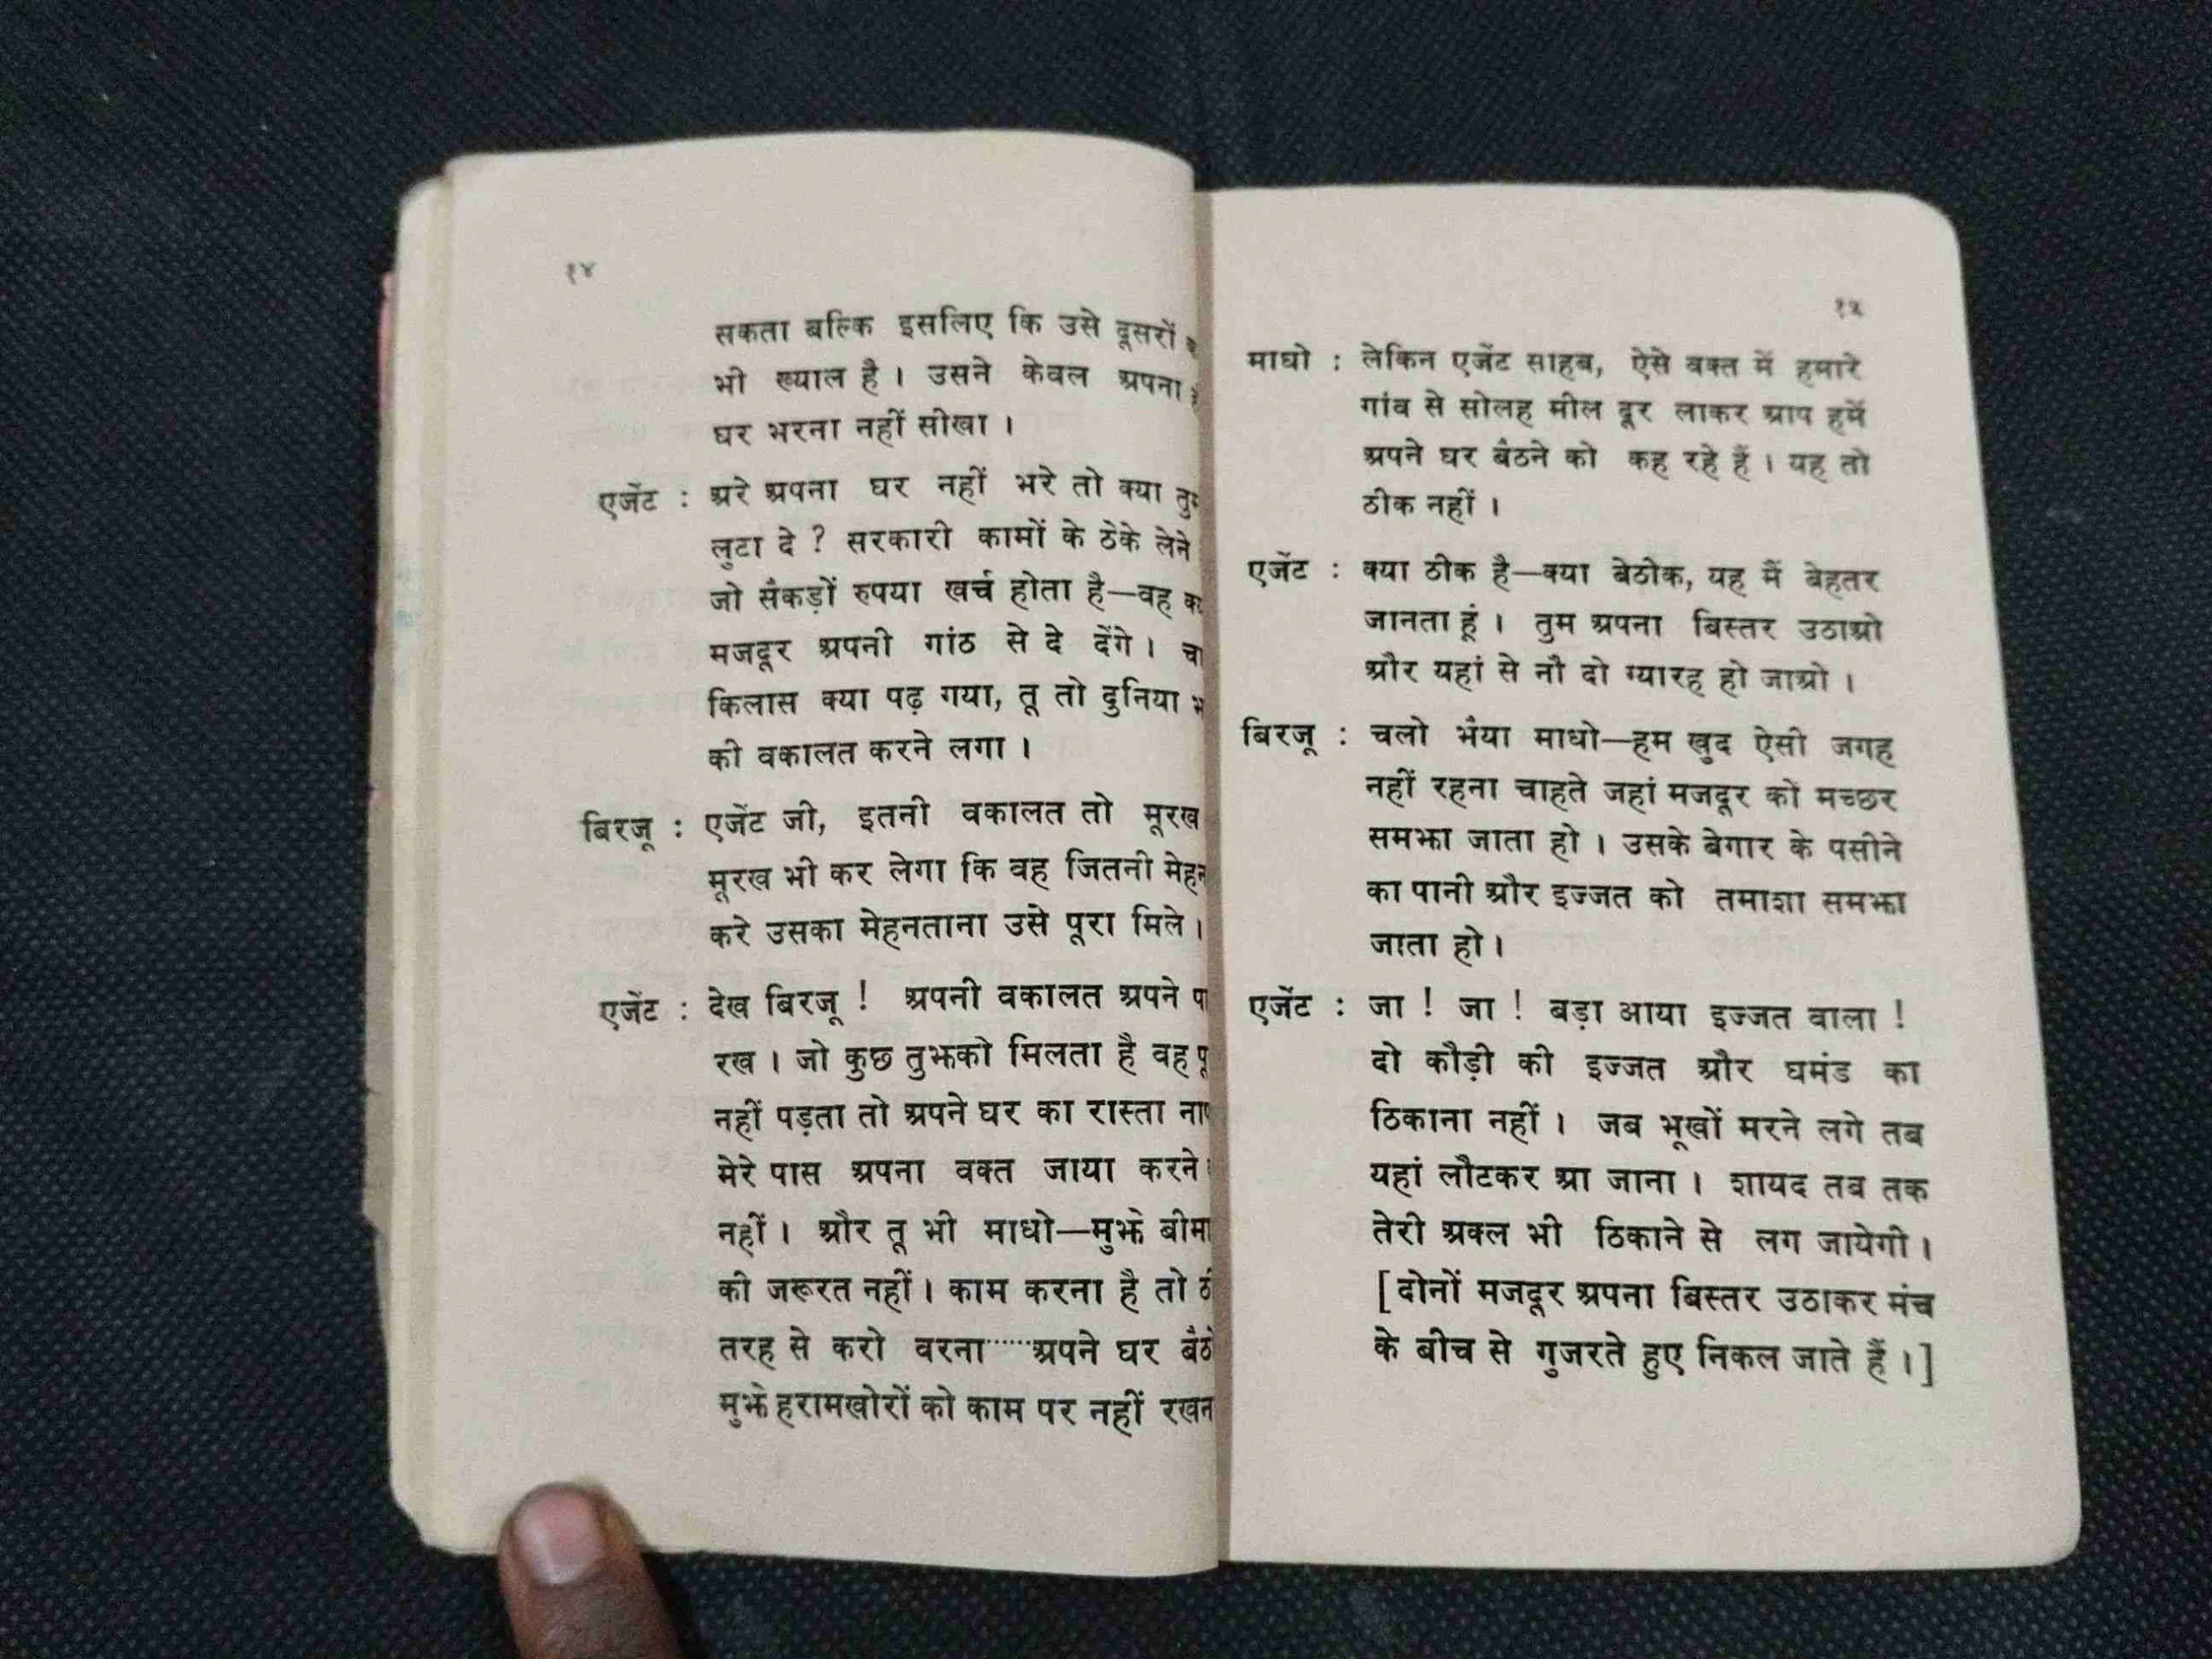 १४
सकता बल्कि इसलिए कि उसे दूसरों
भी ख्याल है । उसने केवल अपना
घर भरना नहीं सीखा ।
एजेंट : अरे अपना घर नहीं भरे तो क्या
लुटा दे ? सरकारी कामों के ठेके लेने
जो सैंकड़ों रुपया खर्च होता है—वह
मजदूर अपनी गांठ से दे देंगे ।
किलास क्या पढ़ गया, तू तो दुनिया
की वकालत करने लगा ।
बिरजू : एजेंट जी, इतनी वकालत तो मूरख
मूरख भी कर लेगा कि वह जितनी
करे उसका मेहनताना उसे पूरा मिले ।
एजेंट : देख बिरजू ! अपनी वकालत अपने
रख । जो कुछ तुझको मिलता है वह
नहीं पड़ता तो अपने घर का रास्ता
मेरे पास अपना वक्त जाया करने
नहीं । और तू भी माधो—मुझे
की जरूरत नहीं । काम करना है तो
तरह से करो वरना······अपने घर
मुझे हरामखोरों को काम पर नहीं
१५
माधो : लेकिन एजेंट साहब, ऐसे वक्त में हमारे
गांव से सोलह मील दूर लाकर आप हमें
अपने घर बैठने को कह रहे हैं । यह तो
ठीक नहीं ।
एजेंट : क्या ठीक है—क्या बेठीक, यह मैं बेहतर
जानता हूं । तुम अपना बिस्तर उठाओ
और यहां से नौ दो ग्यारह हो जाओ ।
बिरजू : चलो भैया माधो—हम खुद ऐसी जगह
नहीं रहना चाहते जहां मजदूर को मच्छर
समझा जाता हो । उसके बेगार के पसीने
का पानी और इज्जत को तमाशा समझा
जाता हो ।
एजेंट : जा ! जा ! बड़ा आया इज्जत वाला !
दो कौड़ी की इज्जत और घमंड का
ठिकाना नहीं । जब भूखों मरने लगे तब
यहां लौटकर आ जाना । शायद तब तक
तेरी अक्ल भी ठिकाने से लग जायेगी ।
[दोनों मजदूर अपना बिस्तर उठाकर मंच
के बीच से गुजरते हुए निकल जाते हैं ।]